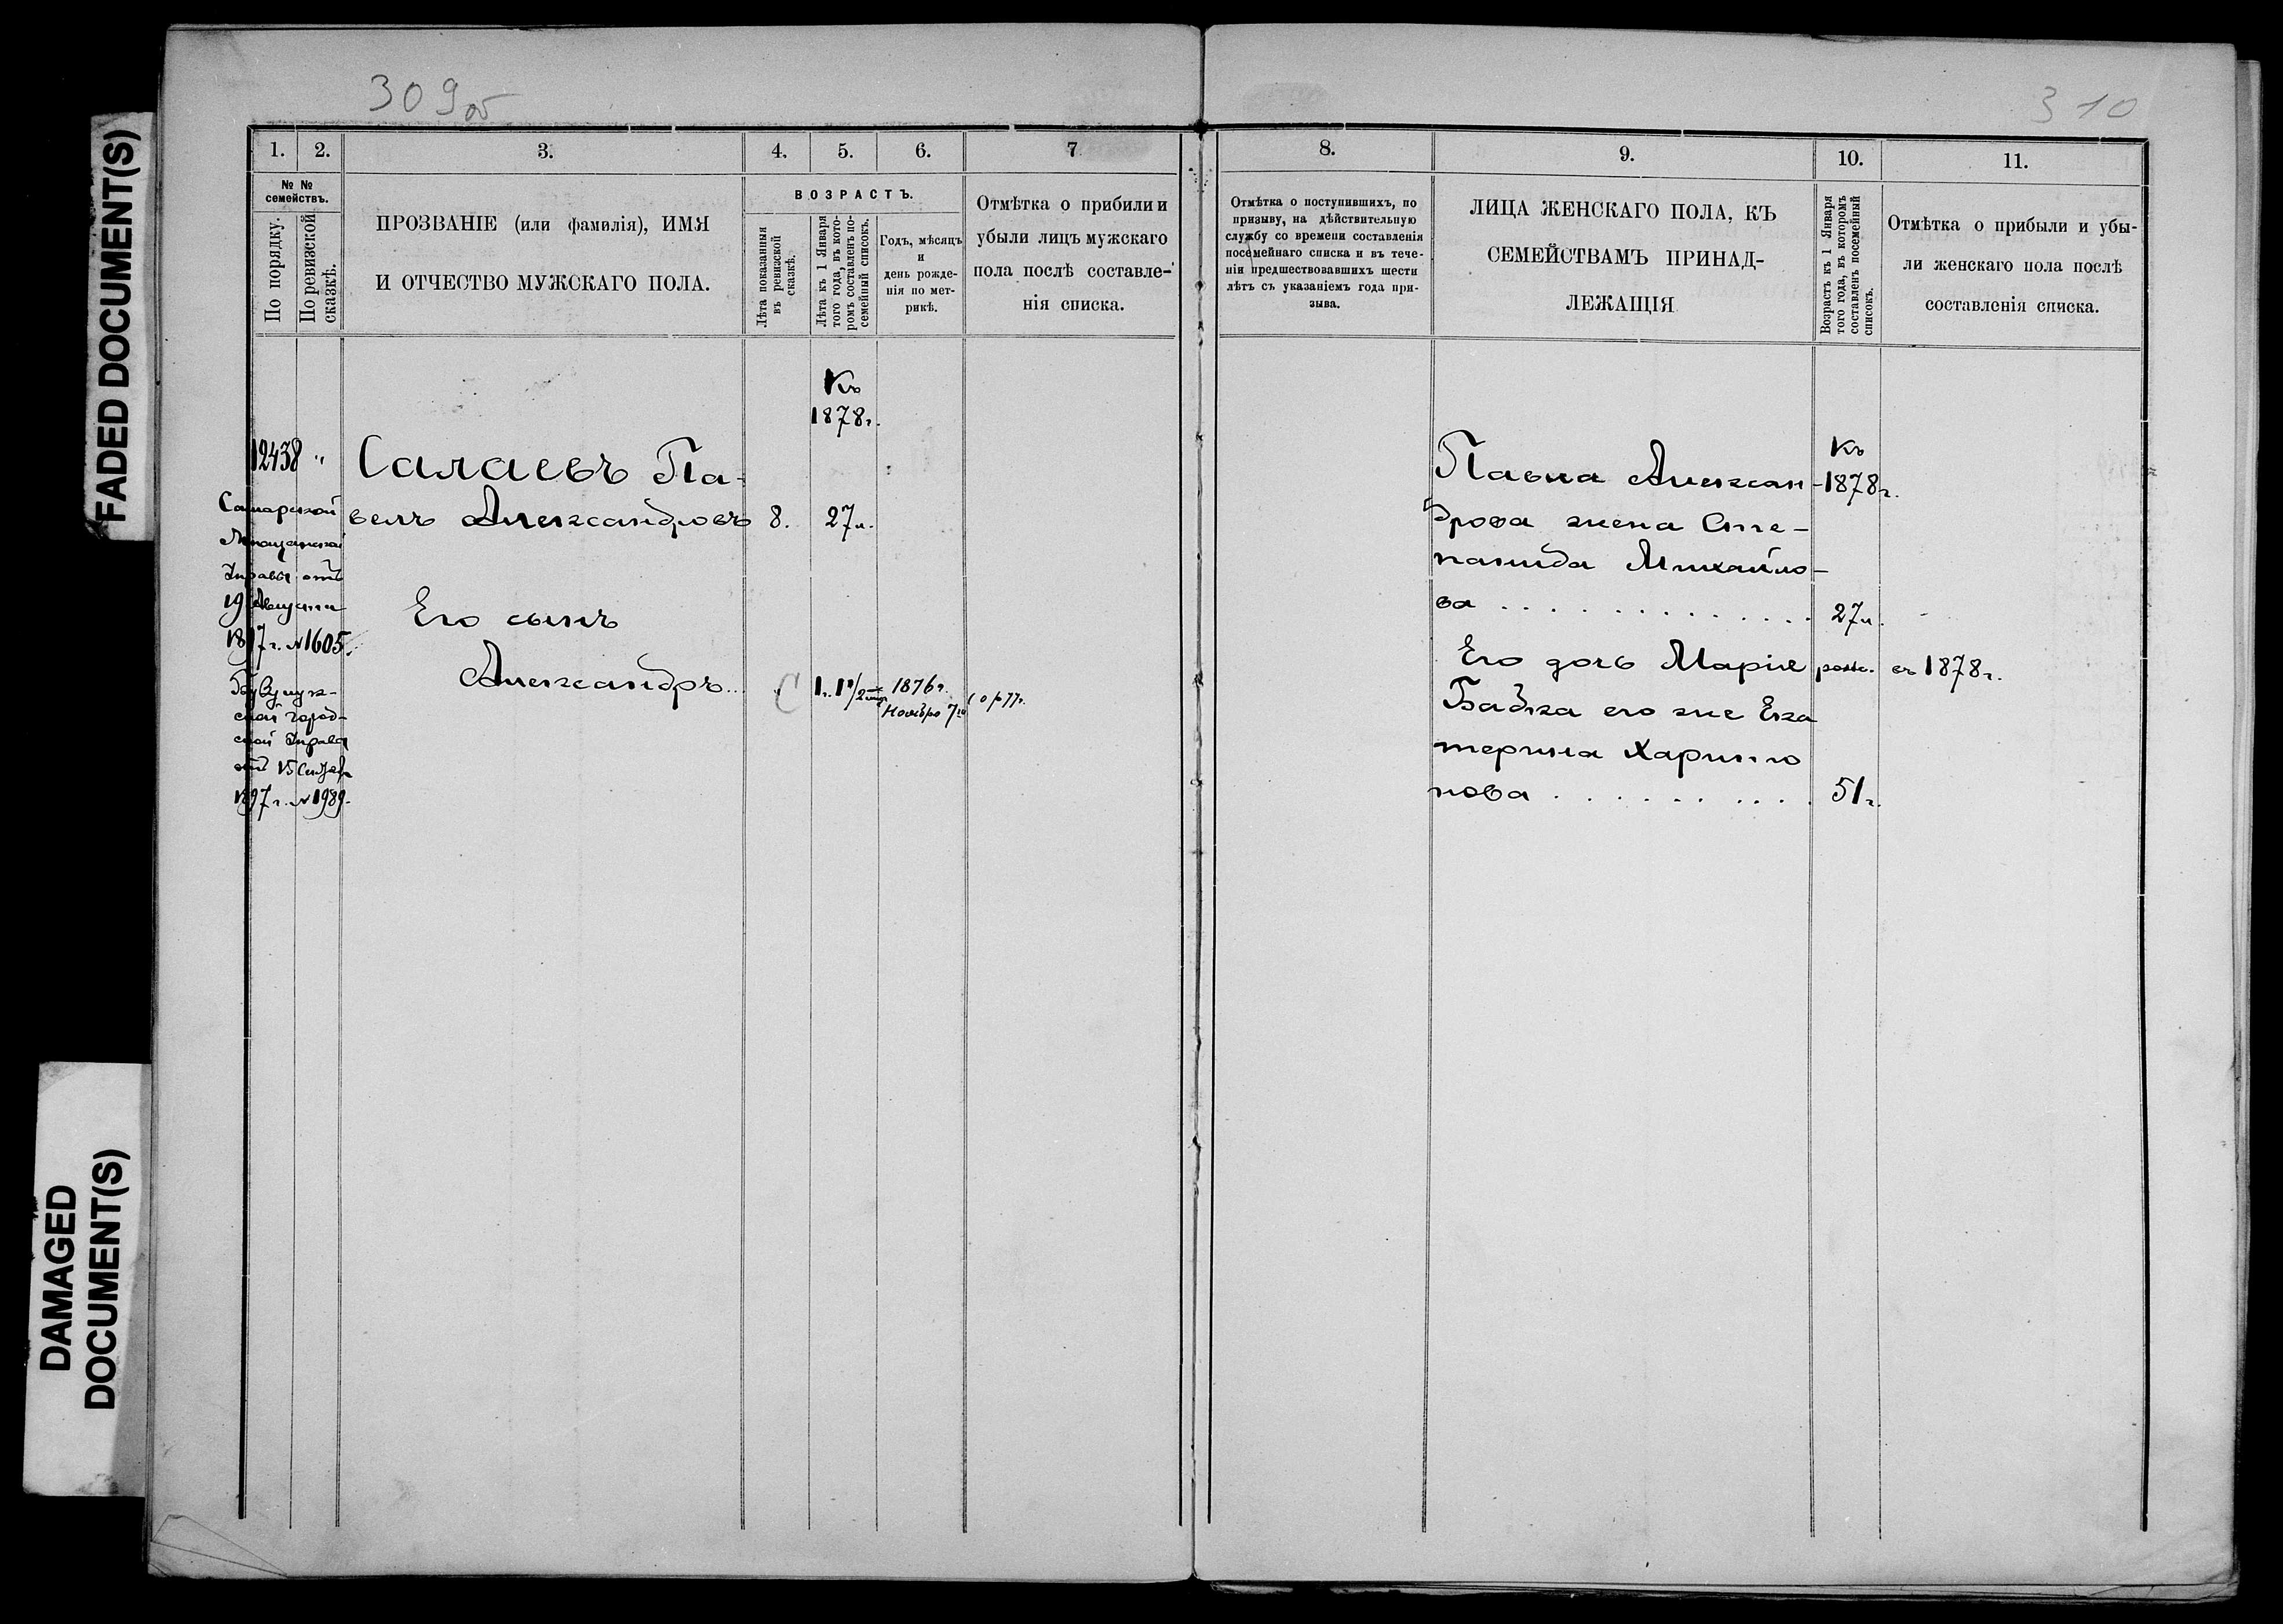 FADED DOCUMENT(S)
DAMAGED
DOCUMENT(S)
309об
1. 2. 3. 4. 5. 6. 7
№ №
семействъ.
По порядку.
По ревизской
сказкѣ.
ПРОЗВАНІЕ (или фамилія), ИМЯ
И ОТЧЕСТВО МУЖСКАГО ПОЛА.
ВОЗРАСТЪ.
Лѣта показанныя
въ ревизской
сказкѣ.
Лѣта къ 1 Января
того года, въ кото-
ромъ составленъ по-
семейный списокъ.
Годъ, мѣсяцъ
и
день рожде-
нія по мет-
рикѣ.
Отмѣтка о прибили и
убыли лицъ мужскаго
пола послѣ составле-
нія списка.
Къ
1878г.
12438 "
Салаевъ Па-
велъ Александровъ 8. 27л.
Самарской
Мѣщанской
Управы отъ
19 Августа
1897г. №1605.
Бузулук-
ской город-
ской Управы
отъ 15 Сентяб
1897г. №1989.
Его сынъ
Александръ... " 1г. 1½ мца 1876г.
Ноября 7го
310
8. 9. 10. 11.
Отмѣтка о поступившихъ, по
призыву, на дѣйствительную
службу со времени составленія
посемейнаго списка и въ тече-
ніи предшествовавшихъ шести
лѣтъ съ указаніемъ года при-
зыва.
ЛИЦА ЖЕНСКАГО ПОЛА, КЪ
СЕМЕЙСТВАМЪ ПРИНАД-
ЛЕЖАЩІЯ
Возрастъ къ 1 Января
того года, въ которомъ
составленъ посемейный
списокъ.
Отмѣтка о прибыли и убы-
ли женскаго пола послѣ
составленія списка.
Къ
1878г.
Павла Алексан-
дрова жена Сте-
панида Михайло-
ва . . . . . . . . . . . . 27л.
Его дочь Марія рожд. въ 1878г.
Бабка его же Ека
терина Харито
нова . . . . . . . . . . 51г.